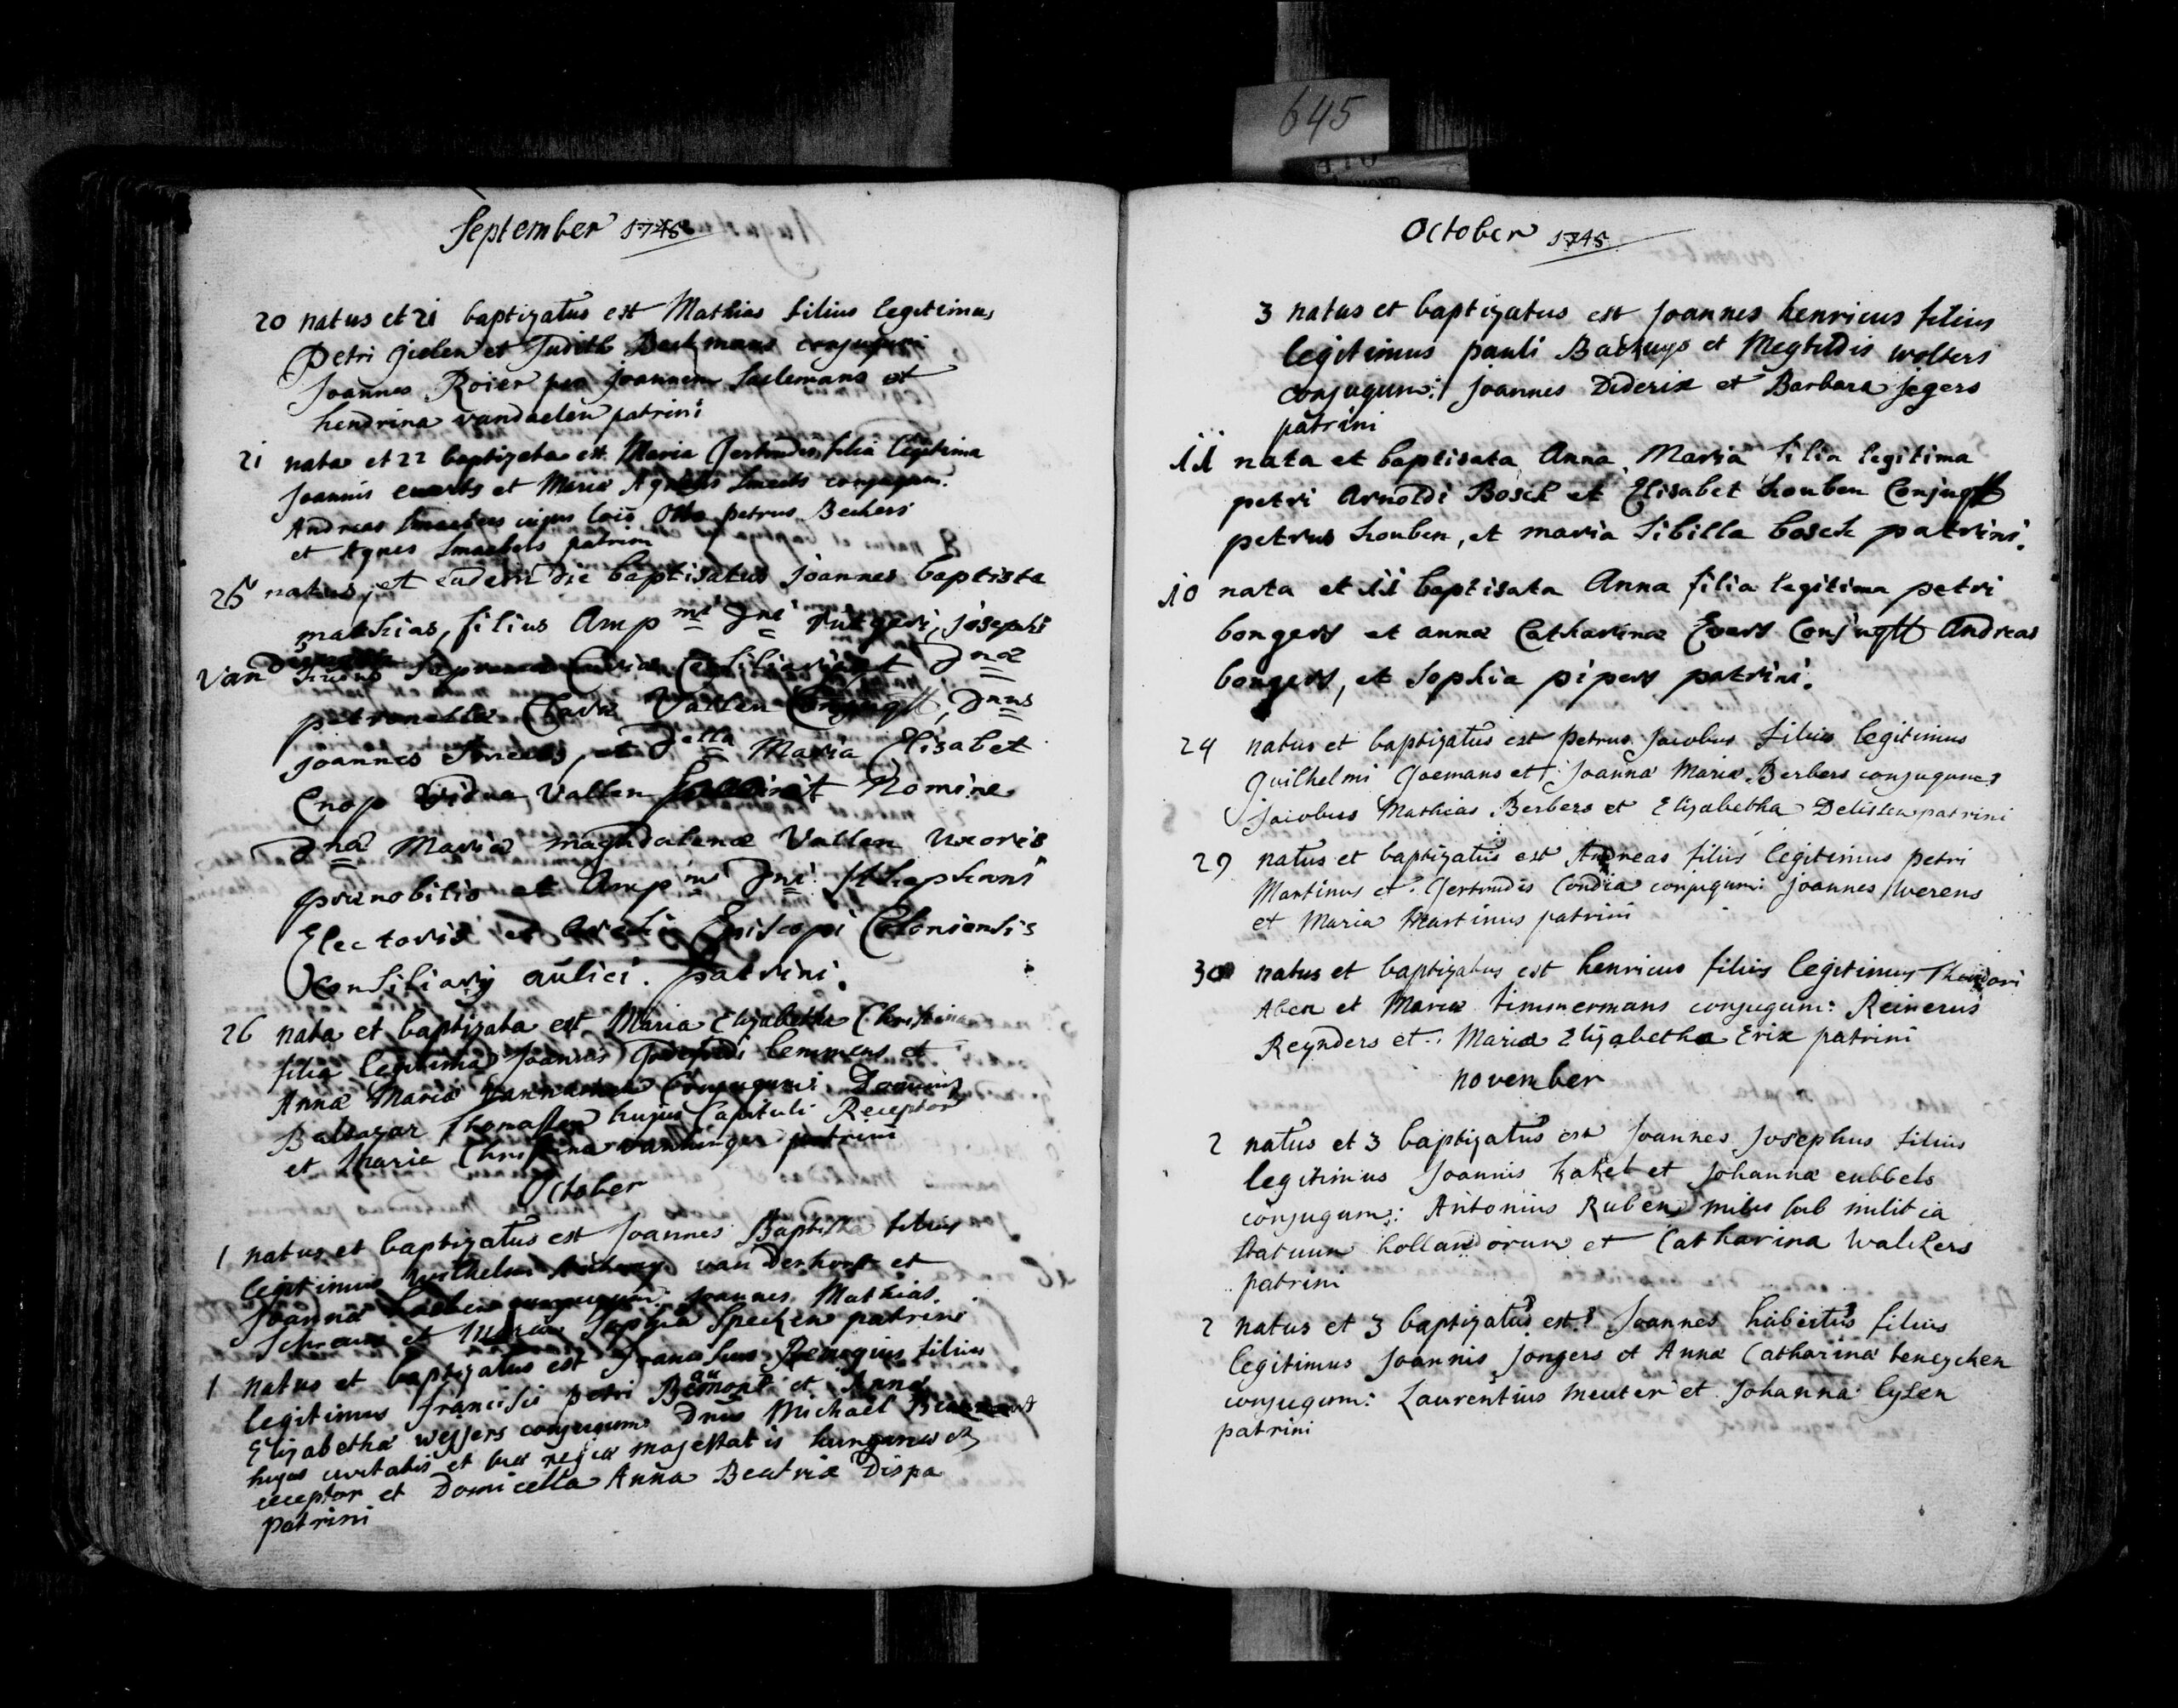 645
September 1745
20 natus et 21 baptizatus est Mathias filius legitimus
Petri Gielen et Judith Beckmans conjugum:
Joannes Roier pro Joannem Saelemans et
hendrina vandaelen patrini
21 nata et 22 baptizata est Maria Gertrudis filia legitima
Joannis everts et Maria Agnetis Smeets conjugum:
Andreas cujus loco Otto petrus Beckers
et Agnes Smaebers patrini
25 natus, et eadem die baptisatus Joannes baptista
mathias, filius Amp mi Dni rutgeri, josephi
van supremae Curiae Consiliarii et Dnae
petronellae Clara Vallen Conjugum, Dnus
joannes et Della Maria Elisabet
Cnop Vidua Vallen Nomine
Dnae Maria magdalenae Vallen uxoris
praenobilis et Ampmi Dni Stephani
Electoris et Archi Episcopi Coloniensis
Consiliarij aulici. patrini.
26 nata et baptizata est Maria Elizabetha Christina
filia legitima Joannis Godefridi lemmens et
Anna Maria conjugum: Dominus
Baltazar Thomassen hujus Capituli Receptor
et Maria Christina patrini
October
1 natus et baptizatus est Joannes Baptista filius
legitimus Wilhelmi van Derhorst et
Joanna conjugum: Joannes Mathias
et Maria Sophia Specken patrini
1 natus et baptizatus est Franciscus Remigius filius
legitimus francisci petri Beaumont et Anna
Elizabetha weyers conjugum Dnus Michael
hujus civitatis et suae regiae majestatis hungariae
receptor et Domicella Anna Beatrix Dispa
patrini
October 1745
3 natus et baptizatus est Joannes henricus filius
legitimus pauli Backuys et Megtildis wolters
conjugum: Joannes Diderix et Barbara jegers
patrini
11 nata et baptisata Anna Maria filia legitima
petri Arnoldi Bosch et Elisabet houben Conjugum
petrus houben, et maria Sibilla bosch patrini.
10 nata et 11 baptisata Anna filia legitima petri
bongers et anna Catharina Evers Conjugum Andreas
bongers, et Sophia pipers patrini.
24 natus et baptizatus est Petrus Jacobus filius legitimus
Guilhelmi Goemans et Joanna Maria Berbers conjugum:
Jacobus Mathias Berbers et Elizabetha Delissen patrini
29 natus et baptizatus est Andreas filius legitimus petri
Martinus et Gertrudis Condia conjugum: Joannes werens
et Maria Martinus patrini
30 natus et baptizatus est henricus filius legitimus Theodori
Aben et Maria timmermans conjugum: Reinerus
Reynders et Maria Elizabetha Erix patrini
november
2 natus et 3 baptizatus est Joannes Josephus filius
legitimus Joannis kakel et Johanna eubbels
conjugum: Antonius Ruben miles sub militia
statuum hollandorum et Catharina Walckers
patrini
2 natus et 3 baptizatus est Joannes hubertus filius
legitimus Joannis Jongers et Anna Catharina teneycken
conjugum: Laurentius meuter et Johanna lysen
patrini